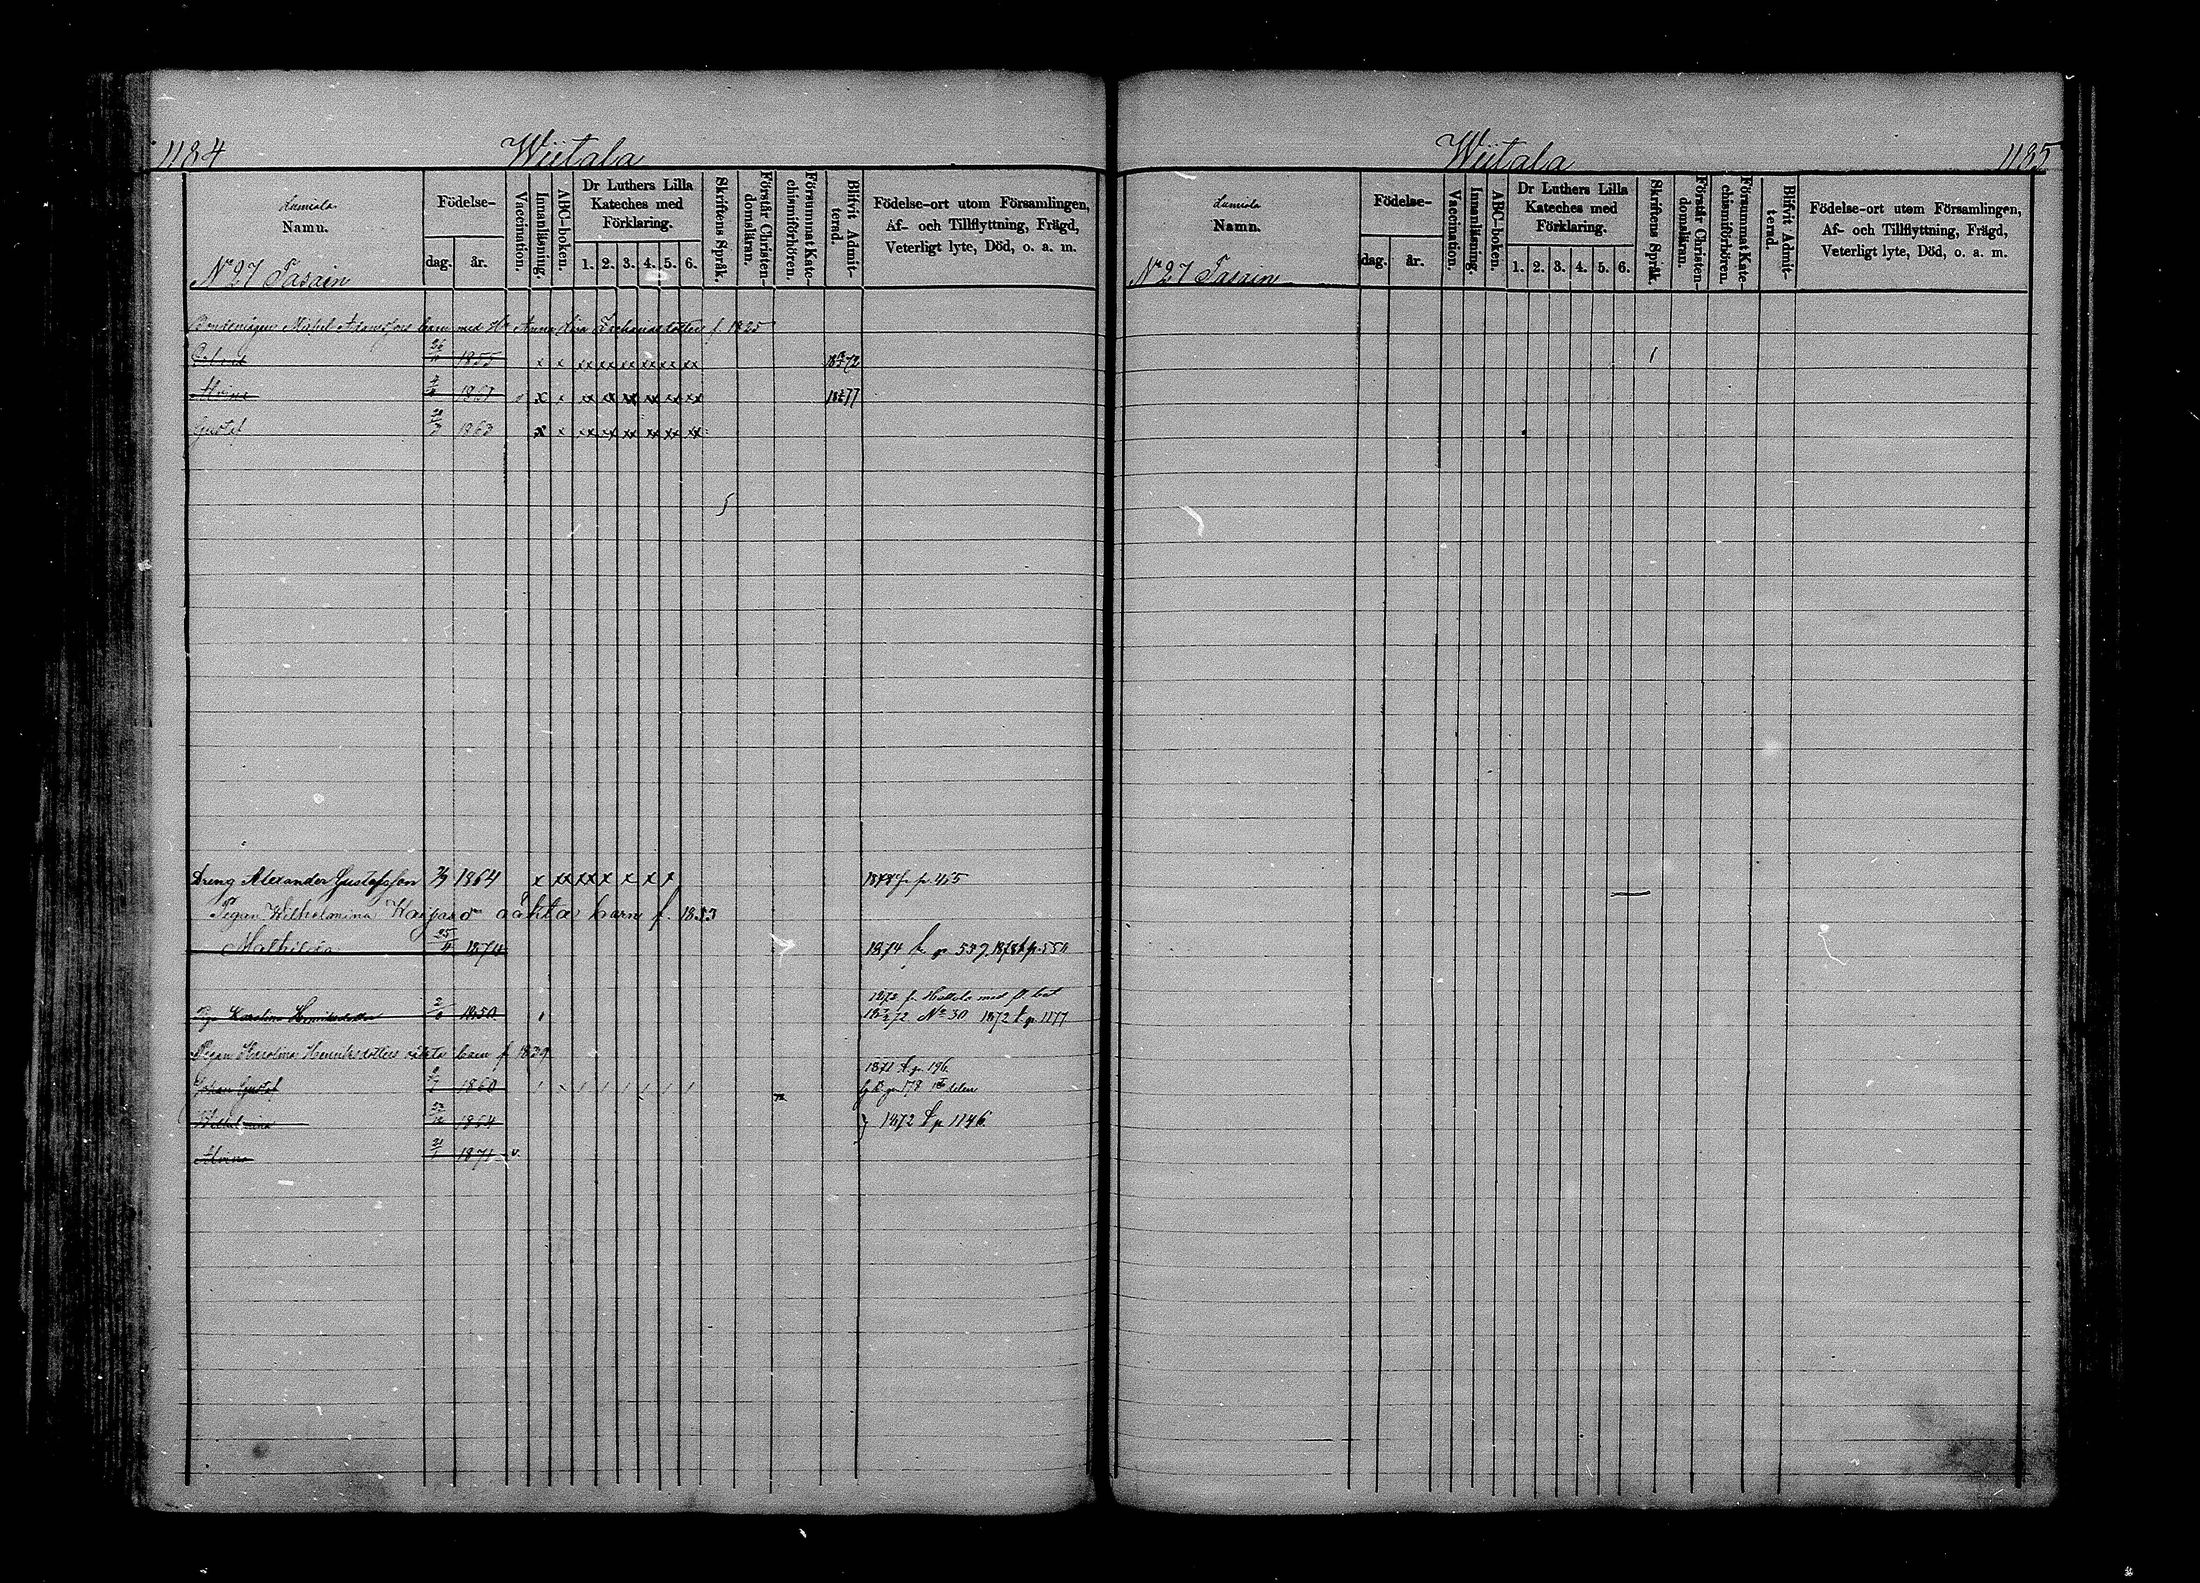 1184 Wiitala
Lumiala
Namn.
Födelse-
dag. år.
Vaccination.
Innanläsning.
ABC-boken.
Dr Luthers Lilla
Kateches med
Förklaring.
1. 2. 3. 4. 5. 6.
Skriftens Språk.
Förstår Christen-
domsläran.
Försummat Kate-
chismiförhören.
Blifvit Admit-
terad.
Födelse-ort utom Församlingen,
Af- och Tillflyttning, Frägd,
Veterligt lyte, Död, o. a. m.
No 27 Pasain
Bondemågen Mickel barn med H: Anna Lisa f. 1825
26 1855 x x xx xx xx xx xx xx 1872
1861 x x xx xx xx xx xx xx 1877
Gustaf 3 1863 x x xx xx xx xx xx xx
5
Dreng Alexander Gustafsson 1864 x xx xx x x x x 1878 fr. p. 455
Pigan Wilhelmina Kaspars d:rs oäkta barn f. 1853
Mathilda 25/11 1874 1874 fr. p. 539, 1878 t. p. 551
1872 fr. med fl. bet
Piga Karolina Henriksdotter 2 1850 No 30 1872 t. p. 1177
Pigan Karolina Henriksdotters oäkta barn f. 1839
1871 t. p. 196.
Johan Gustaf 1860 p. 178 delen
Wilhelmina 1864 } 1872 t. p. 1146.
Alvina 21 1871 v.
Wiitala 1185
Lumiala
Namn.
Födelse-
dag. år.
Vaccination.
Innanläsning.
ABC-boken.
Dr Luthers Lilla
Kateches med
Förklaring.
1. 2. 3. 4. 5. 6.
Skriftens Språk.
Förstår Christen-
domsläran.
Försummat Kate-
chismiförhören.
Blifvit Admit-
terad.
Födelse-ort utom Församlingen,
Af- och Tillflyttning, Frägd,
Veterligt lyte, Död, o. a. m.
No 27 Pasain